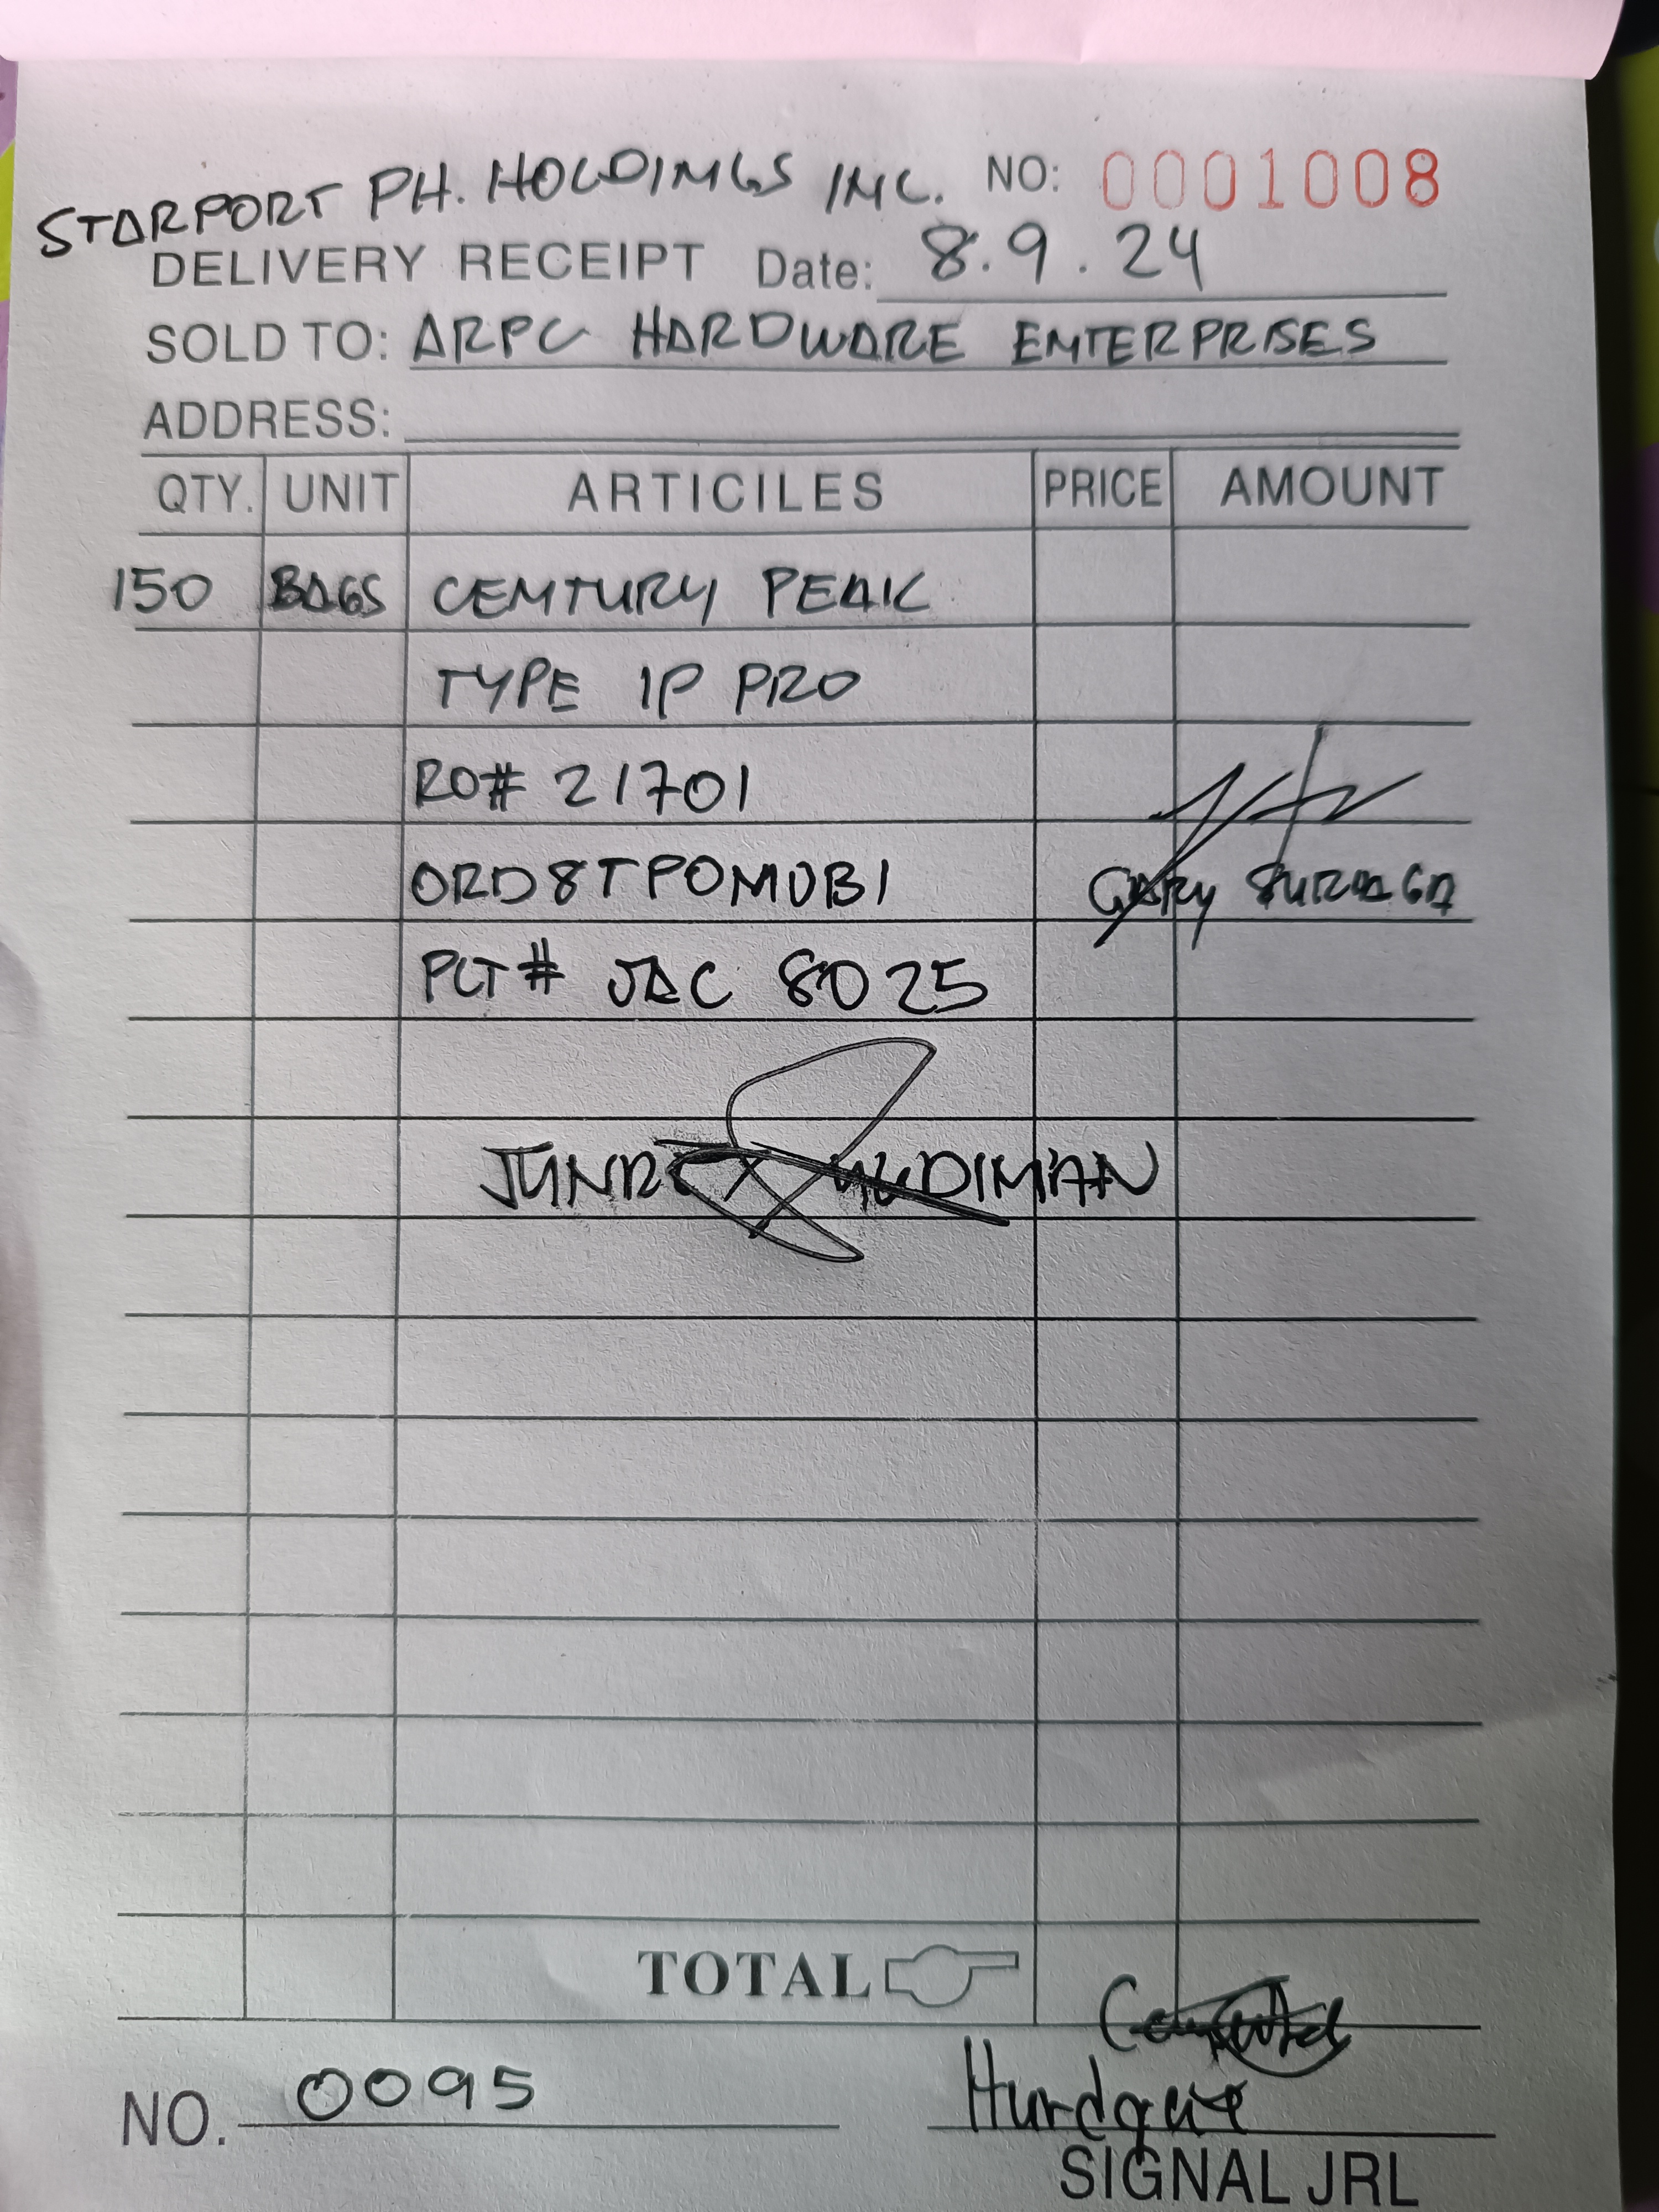 STARPORT PH. HOLDINGS INC. NO: 0001008
DELIVERY RECEIPT Date: 8.9.24
SOLD TO: ARPC HARDWARE ENTERPRISES
ADDRESS:
QTY. UNIT ARTICILES PRICE AMOUNT
150 BAGS CENTURY PEAK
TYPE 1P PRO
RO# 21701
ORD8TPOMUB1
GARY
PLT# JAC 8025
TOTAL
NO. 0095
SIGNAL JRL